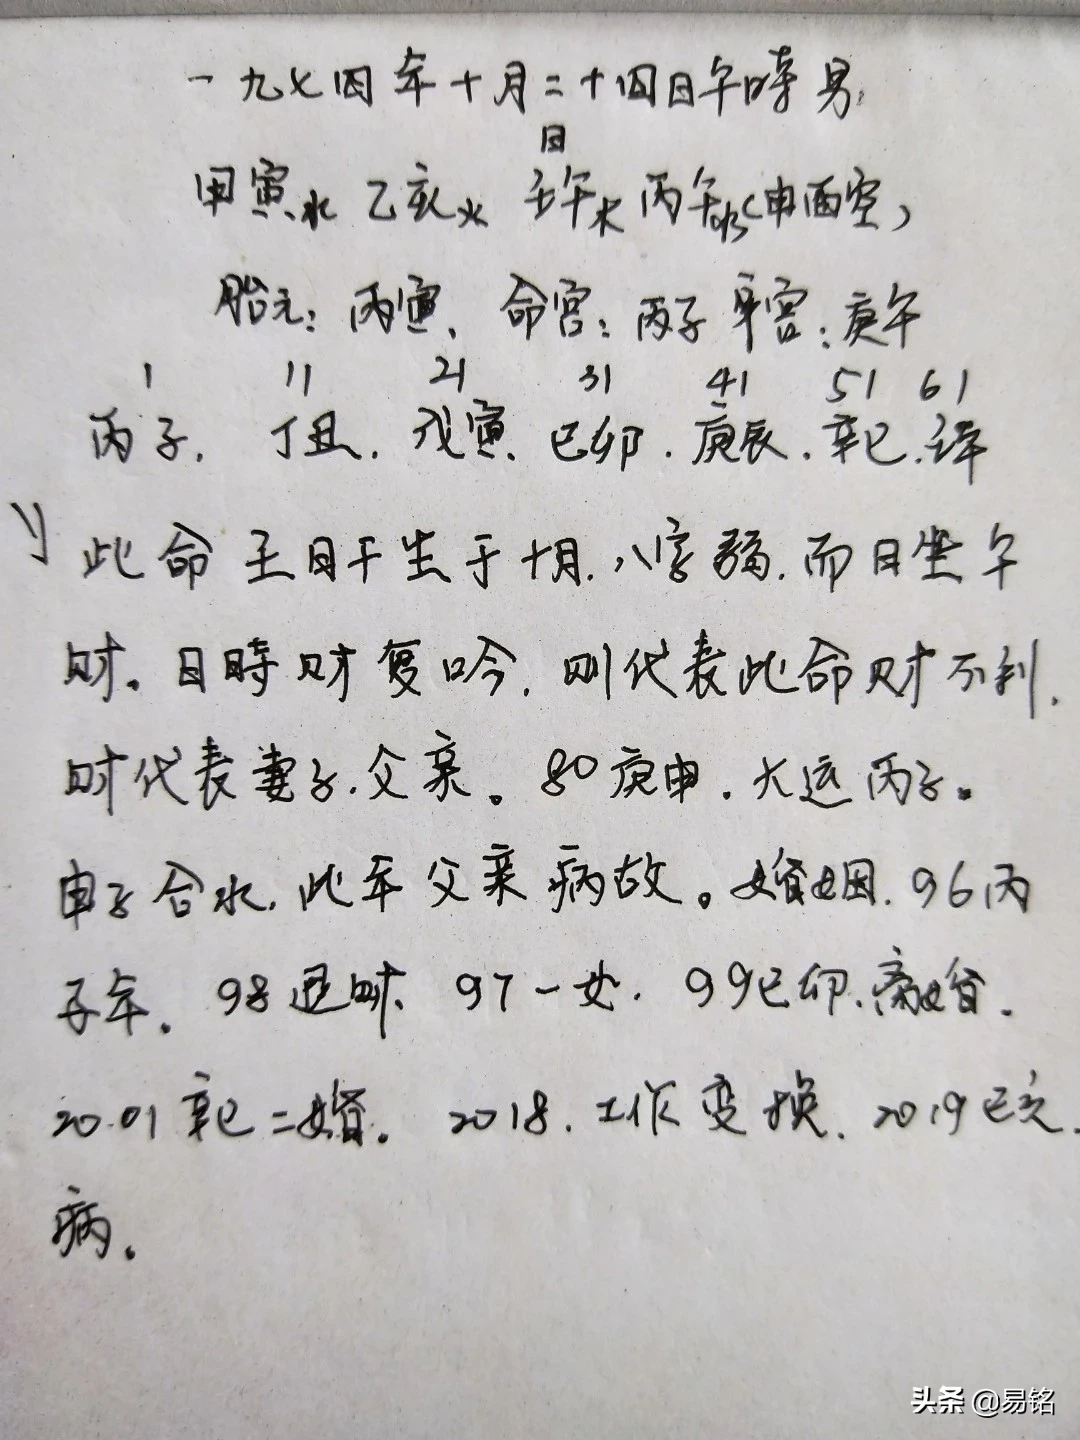 一九七四年十月二十四日午時男
日
甲寅水 乙亥火 壬午木 丙午水(申酉空)
胎元:丙寅、命宫:丙子 身宫:庚午
1 11 21 31 41 51 61
丙子、丁丑、戊寅、己卯、庚辰、辛巳、壬午
1) 此命壬日干生于十月,八字弱,而日坐午
财。日時财复吟,则代表此命财不利,
财代表妻子、父亲。80庚申,大运丙子。
申子合水,此年父亲病故。婚姻,96丙
子年。98退财、97一女,99己卯、离婚。
2001辛巳二婚。2018,工作变换,2019己亥、
病。
头条 @易铭